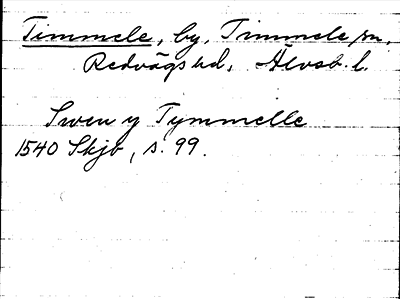 Timmele, by, Timmele sn,
Redvägs hd, Älvsb. l.
Swen y Tymmelle
1540 Skjb, s. 99.